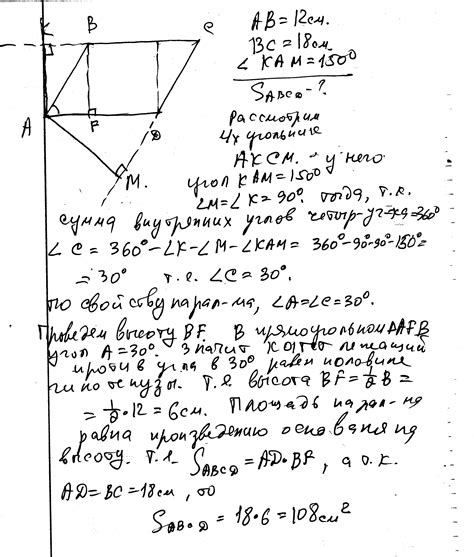 K B C
A F D
M.
AB = 12см.
BC = 18см
∠ KAM = 150°
S ABCD - ?
Рассмотрим
4х угольник
AKCM. - у него
угол KAM = 150°
∠M = ∠K = 90°. тогда, т.к.
сумма внутренних углов четыр-уг-ка = 360°
∠ C = 360° - ∠K - ∠M - ∠KAM = 360° - 90° - 90° - 150° =
= 30° т.е. ∠C = 30°.
По свойству парал-ма, ∠A = ∠C = 30°.
Проведем высоту BF. В прямоугольном ΔAFB
угол A = 30°. Значит катет лежащий
против угла в 30° равен половине
гипотенузы. Т.е высота BF = 1/2 B =
= 1/2 · 12 = 6см. Площадь парал-ма
равна произведению основания на
высоту. т.е. S ABCD = AD · BF, а т.к.
AD = BC = 18см, то
S ABCD = 18 · 6 = 108см²